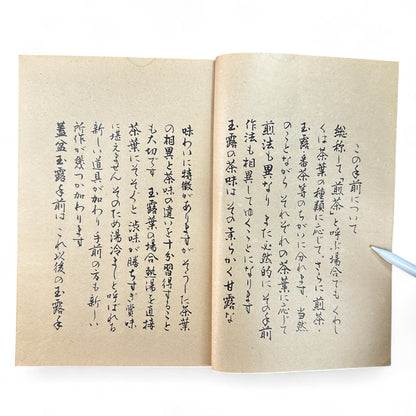 この手前について
総称して「煎茶」と呼ぶ場合でも くわし
くは茶葉の種類に応じて、さらに 煎茶・
玉露・番茶等のちがいに分れます 当然
のことながら それぞれの茶葉に応じて
煎法も異なり また必然的に その手前
作法も相異してゆくことになります
玉露の茶味は その柔らかく甘露な
味わいに特徴がありますが そうした茶葉
の相異と茶味の違いを十分習得すること
も大切です 玉露葉の場合 熱湯を直接
茶葉にそそぐと 渋味が勝ちすぎ賞味
に堪えません そのため湯冷ましと呼ばれる
新しい道具が加わり 手前の方も新しい
所作が幾つか加わります
蓋盆玉露手前は これ以後の玉露手